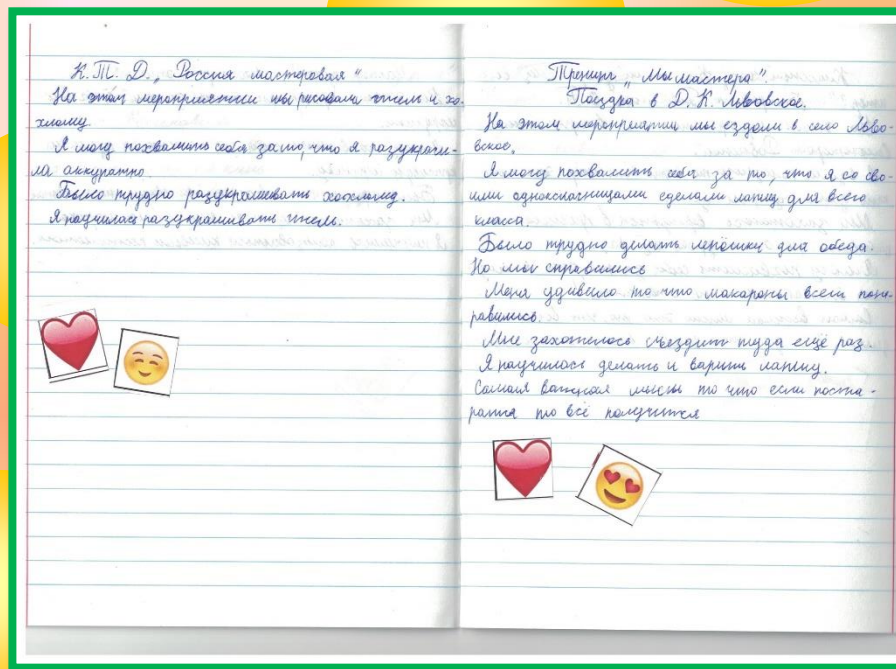 К.Т.Д. „Россия мастеровая"
На этом мероприятии мы рисовали гжель и хо-
хлому
Я могу похвалить себя за то, что я разукраси-
ла аккуратно.
Было трудно разукрашивать хохлому.
Я научилась разукрашивать гжель.
Тренинг „Мы мастера".
Поездка в Д.К. Львовское.
На этом мероприятии мы ездили в село Льво-
вское.
Я могу похвалить себя за то, что я со сво-
ими одноклассницами сделали лапшу для всего
класса.
Было трудно делать лепёшки для обеда.
Но мы справились
Меня удивило то что макароны всем пон-
равились.
Мне захотелось съездить туда ещё раз.
Я научилась делать и варить лапшу.
Самая важная мысль то что если поста-
ратся то всё получится